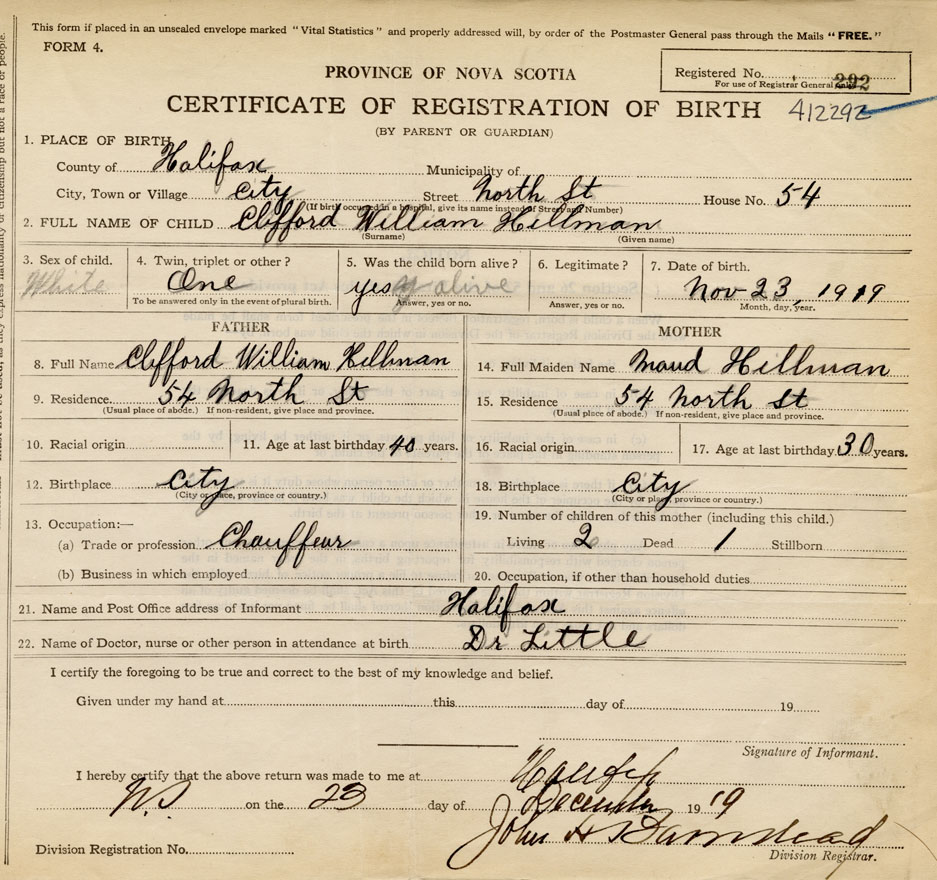 This form if placed in an unsealed envelope marked "Vital Statistics" and properly addressed will, by order of the Postmaster General pass through the Mails "FREE."
FORM 4.
PROVINCE OF NOVA SCOTIA
Registered No. 292
For use of Registrar General only.
CERTIFICATE OF REGISTRATION OF BIRTH 412292
(BY PARENT OR GUARDIAN)
1. PLACE OF BIRTH
County of Halifax Municipality of
City, Town or Village City Street North St House No. 54
(If birth occurred in a hospital, give its name instead of Street and Number)
2. FULL NAME OF CHILD Clifford William Hillman
(Surname) (Given name)
3. Sex of child. 4. Twin, triplet or other? 5. Was the child born alive? 6. Legitimate? 7. Date of birth.
White One yes alive Nov 23, 1919
To be answered only in the event of plural birth. Answer, yes or no. Answer, yes or no. Month, day, year.
FATHER MOTHER
8. Full Name Clifford William Hillman 14. Full Maiden Name Maud Hillman
9. Residence. 54 North St 15. Residence 54 North St
(Usual place of abode.) If non-resident, give place and province. (Usual place of abode.) If non-resident, give place and province.
10. Racial origin 11. Age at last birthday 40 years. 16. Racial origin 17. Age at last birthday 30 years.
12. Birthplace City 18. Birthplace City
(City or place, province or country.) (City or place, province or country.)
13. Occupation:— 19. Number of children of this mother (including this child.)
(a) Trade or profession Chauffeur Living 2 Dead 1 Stillborn
(b) Business in which employed 20. Occupation, if other than household duties
21. Name and Post Office address of Informant Halifax
22. Name of Doctor, nurse or other person in attendance at birth Dr Little
I certify the foregoing to be true and correct to the best of my knowledge and belief.
Given under my hand at this day of 19
Signature of Informant.
I hereby certify that the above return was made to me at Halifax
NS on the 23 day of December 1919
John H Barnstead
Division Registration No. Division Registrar.